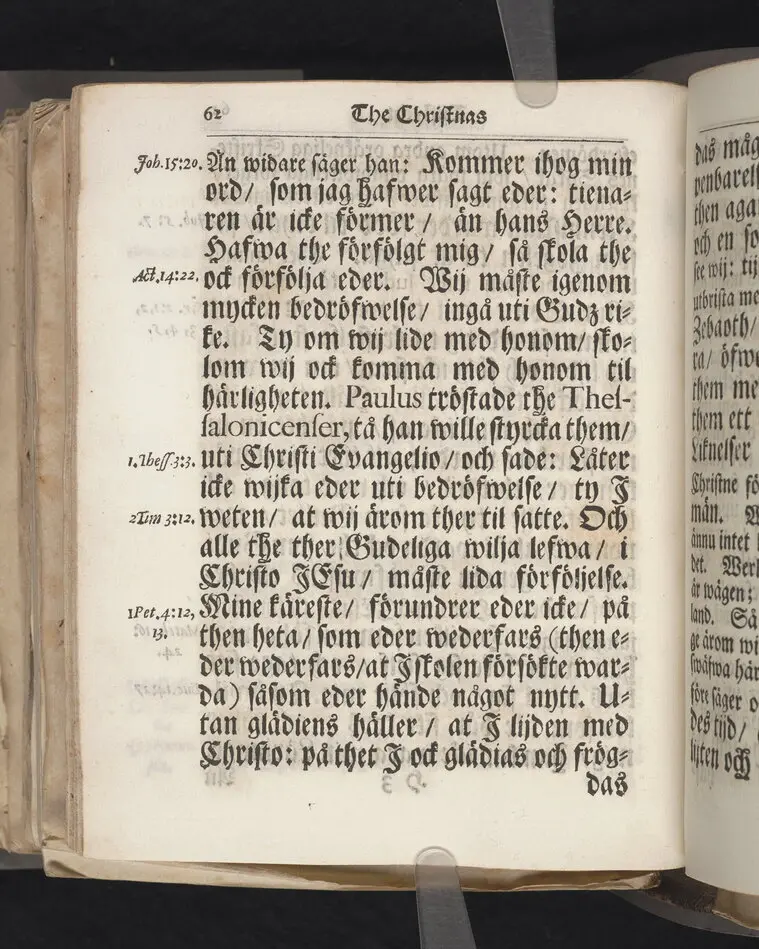 62 The Christnas
Joh. 15:20. Än widare säger han: Kommer ihog min
ord/ som jag hafwer sagt eder: tiena-
ren är icke förmer / än hans Herre.
Hafwa the förfölgt mig/ så skola the
Act. 14:22. ock förfölja eder. Wij måste igenom
mycken bedröfwelse/ ingå uti Gudz ri-
ke. Ty om wij lide med honom/ sko-
lom wij ock komma med honom til
härligheten. Paulus tröstade the Thes-
salonicenser, tå han wille styrcka them/
1. Thess. 3:3. uti Christi Evangelio/ och sade: Låter
icke wijka eder uti bedröfwelse/ ty J
weten/ at wij ärom ther til satte. Och
2 Tim 3:12. alle the ther Gudeliga wilja lefwa/ i
Christo JEsu/ måste lida förföljelse.
1 Pet. 4:12, Mine käreste/ förundrer eder icke/ på
13. then heta/ som eder wederfars (then e-
der wederfars/at J skolen försökte war-
da) såsom eder hände något nytt. U-
tan glädiens häller / at J lijden med
Christo: på thet J ock glädias och frög-
das
das måg
penbarels
then aga
och en so
see wij: tij
utbrista me
Zebaoth/
ra/ öfwe
them me
them ett
Liknelser
Christne fö
män. W
ännu intet
det. Werl
är wägen;
land. Så
ge ärom wi
swäfwa här
före säger o
des tijd/
lijten och